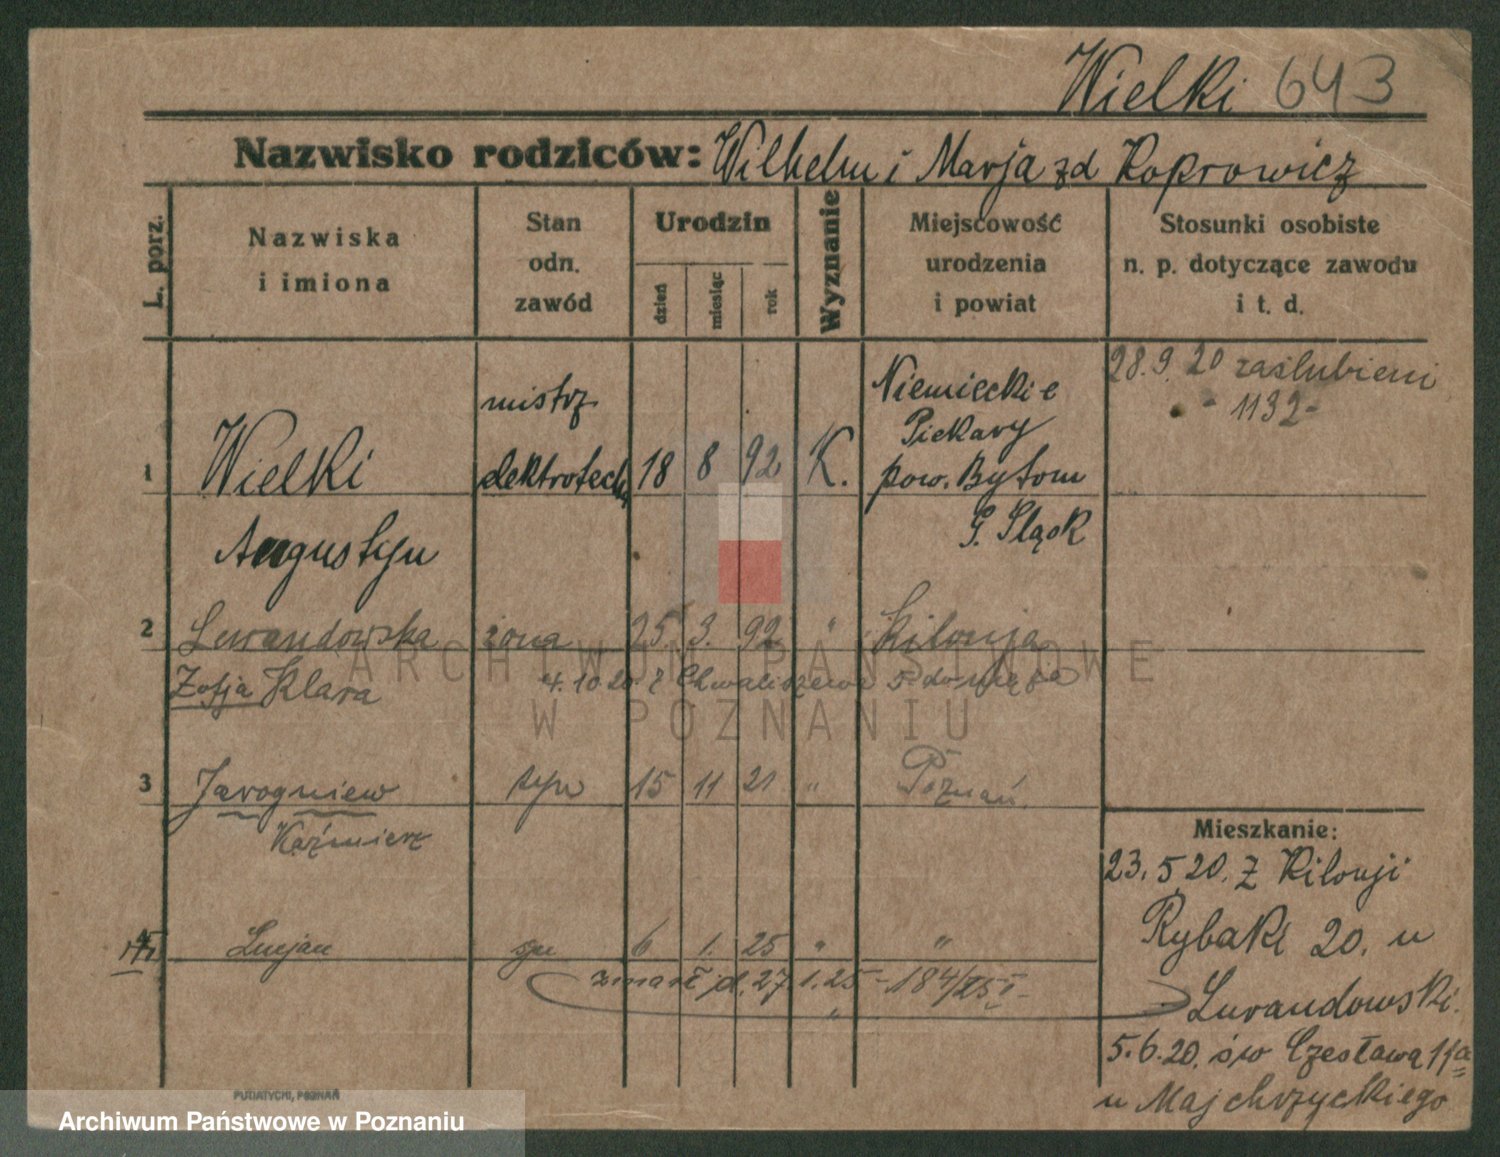 Wielki 643
Nazwisko rodziców: Wilhelm i Marja zd Koprowicz
L. porz.
Nazwiska
i imiona
Stan
odn.
zawód
Urodzin
dzień
miesiąc
rok
Wyznanie
Miejscowość
urodzenia
i powiat
Stosunki osobiste
n. p. dotyczące zawodu
i t. d.
1
Wielki
Augustyn
mistrz
elektrotechn
18 8 92 K.
Niemieckie
Piekary
pow. Bytom
G. Śląsk
28.9.20 zaślubieni
- 1192 -
2 Lewandowska żona 25 3. 92 " Kilonja
Zofja Klara 4.10.20. z Chwaliszewa 5 do męża
3 Jarogniew syn 15 11 21 " Poznań.
Kaźmierz
4 Lucjan syn 6 1. 25 " "
zmarł d. 27.1.25 - 184/25 I -
Mieszkanie:
23.5.20. z Kilonji
Rybaki 20. u
Lewandowski.
5.6.20. św Czesława 11a
u Majchrzyckiego
PUTIATYCKI, POZNAŃ
ARCHIWUM PAŃSTWOWE
W POZNANIU
Archiwum Państwowe w Poznaniu